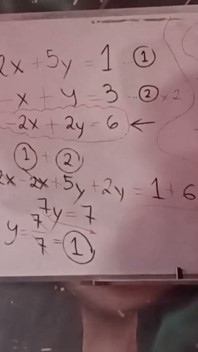 2x + 5y = 1 ①
- x + y = 3 ② × 2
- 2x + 2y = 6 ←
① + ②
2x - 2x + 5y + 2y = 1 + 6
7y = 7
y = 7/7 = 1